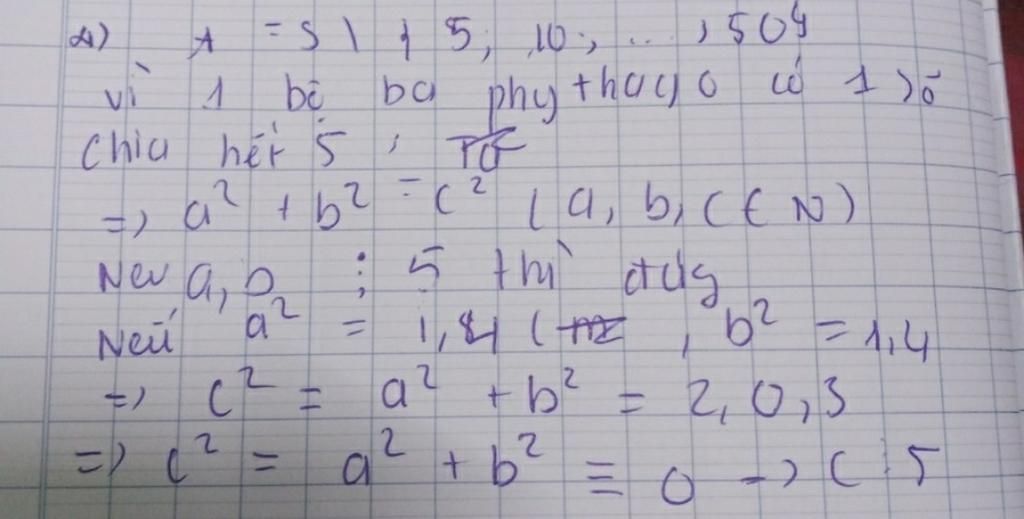 a) A = { 1, 5, 10, ..., 50}
vì 1 bộ ba pythago có 1 số
chia hết 5,
=> a² + b² = c² (a, b, c ∈ N)
Nếu a, b ⋮ 5 thì đúng
Nếu a² = 1, 4 ( , b² = 1,4
=> c² = a² + b² = 2, 0, 3
=> c² = a² + b² ≡ 0 -> c ⋮ 5